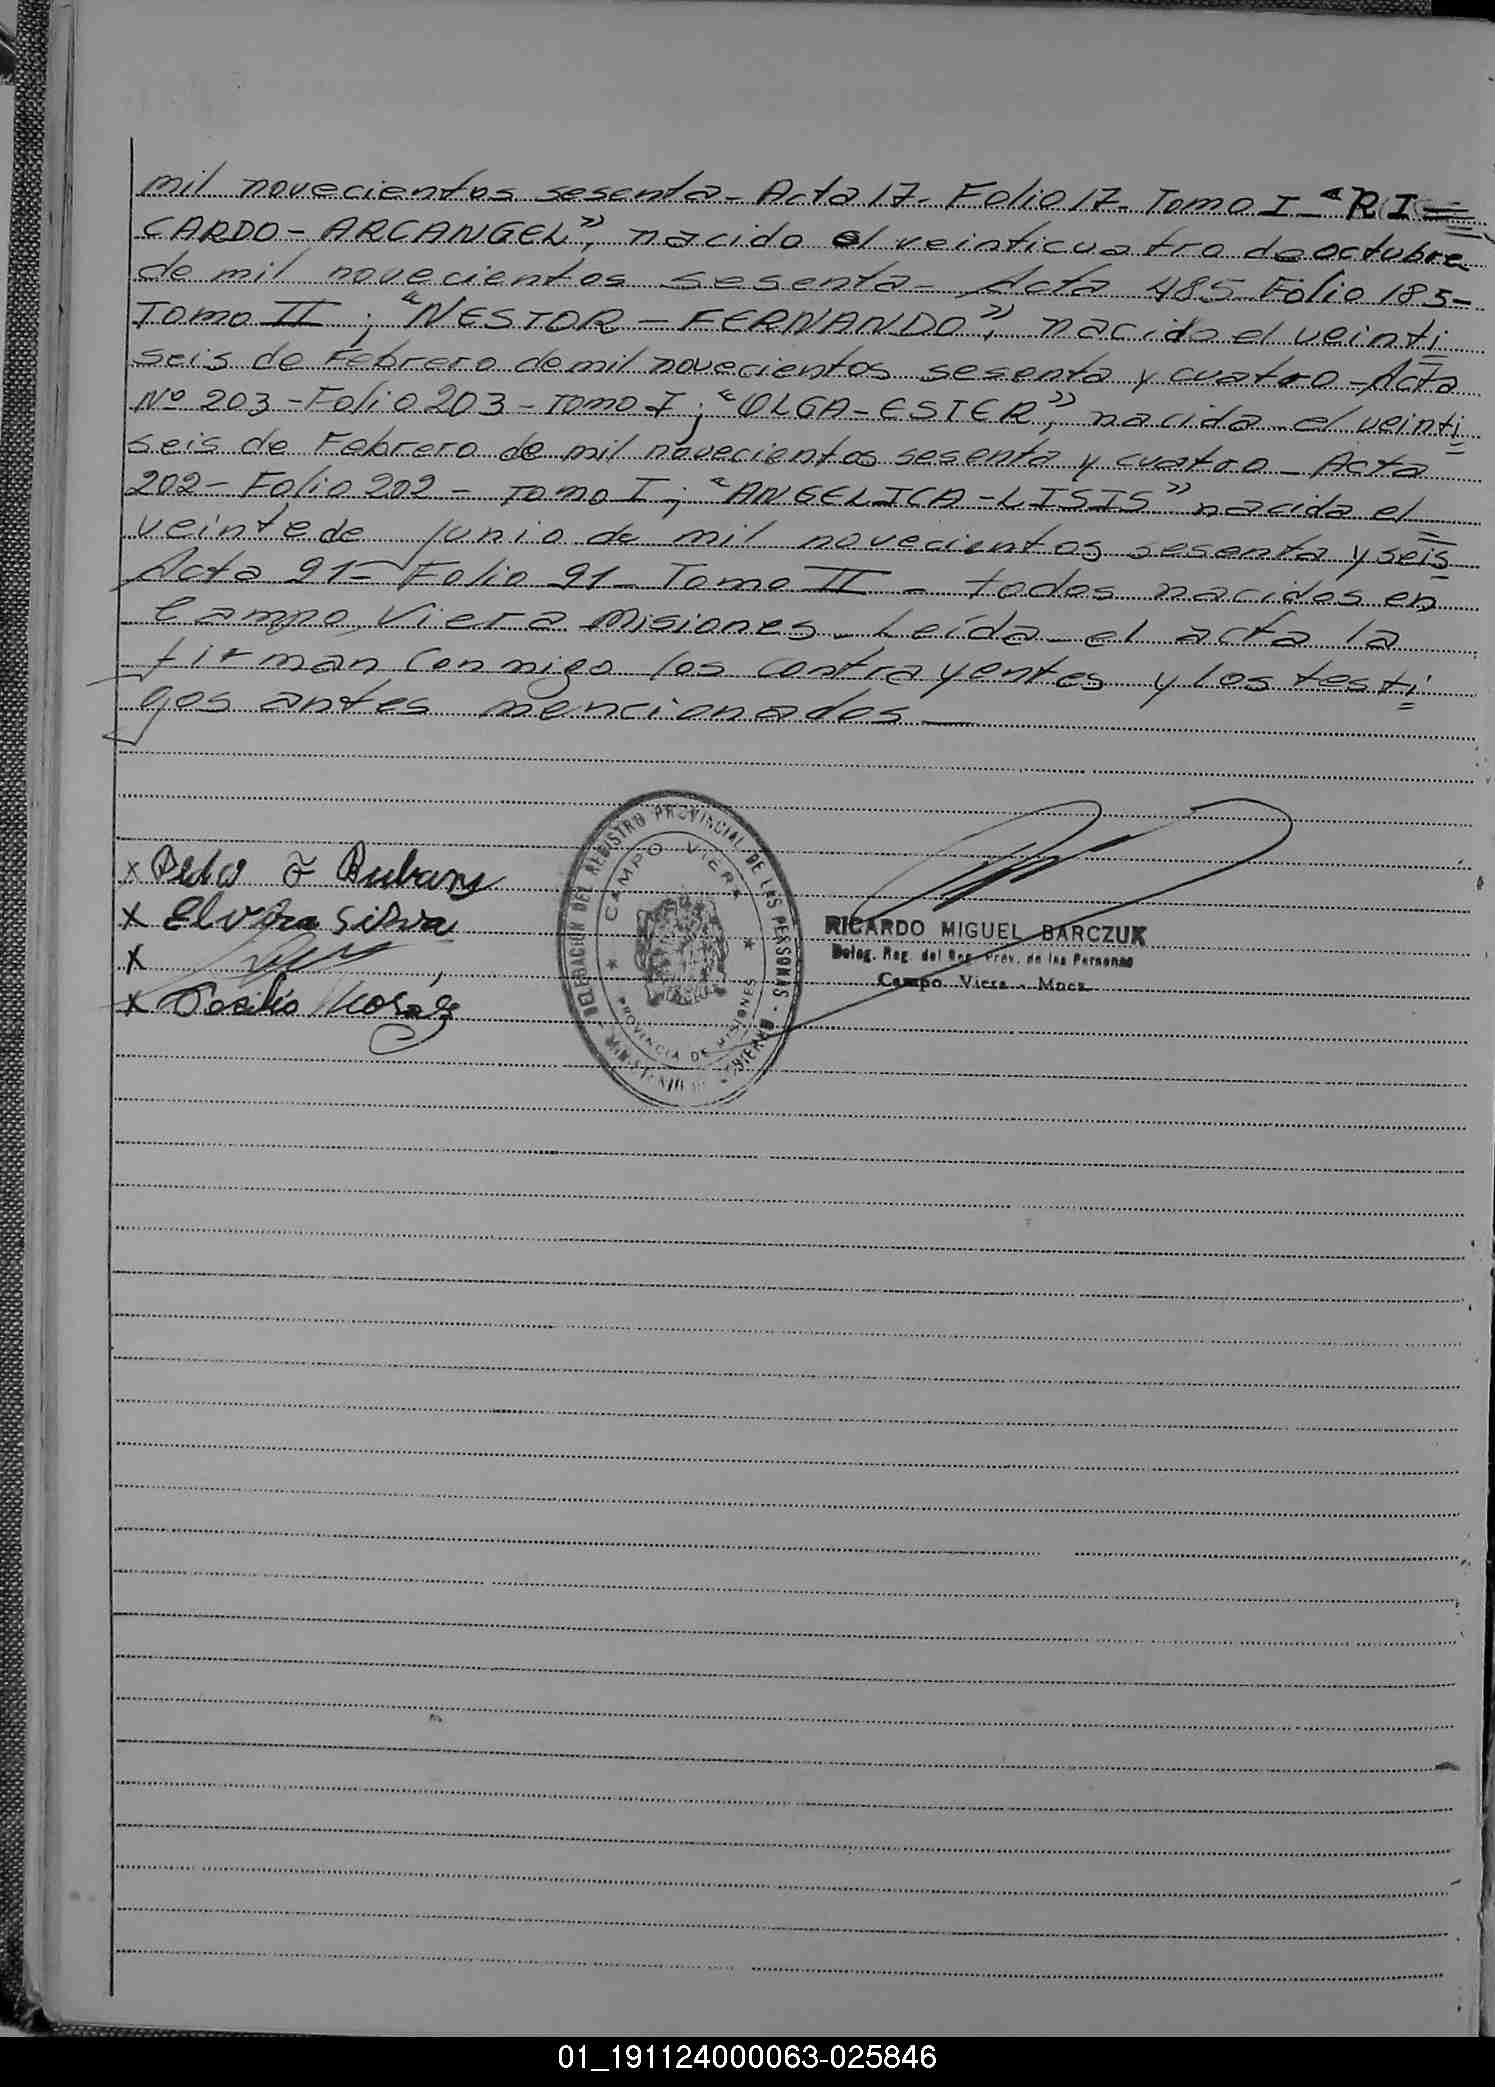 mil novecientos sesenta - Acta 17 - Folio 17 - Tomo I - "RI=
CARDO - ARCANGEL", nacido el veinticuatro de octubre
de mil novecientos sesenta - Acta 485 Folio 185 -
Tomo II ; "NESTOR - FERNANDO", nacido el veinti
seis de Febrero de mil novecientos sesenta y cuatro - Acta
Nº 203 - Folio 203 - Tomo I ; "OLGA - ESTER", nacida el veinti
seis de Febrero de mil novecientos sesenta y cuatro - Acta
202 - Folio 202 - Tomo I ; "ANGELICA - LISIS" nacida el
veinte de Junio de mil novecientos sesenta y seis
Acta 91 - Folio 91 - Tomo II - todos nacidos en
Campo Viera Misiones - Leída el acta la
firman conmigo los contrayentes y los testi
gos antes mencionados —
DELEGACION DEL REGISTRO PROVINCIAL DE LAS PERSONAS -
CAMPO VIERA
PROVINCIA DE MISIONES
x
x Elvira Silva
x
x
RICARDO MIGUEL BARCZUK
Deleg. Reg. del Reg. Prov. de las Personas
Campo Viera - Mnes.
01_191124000063-025846